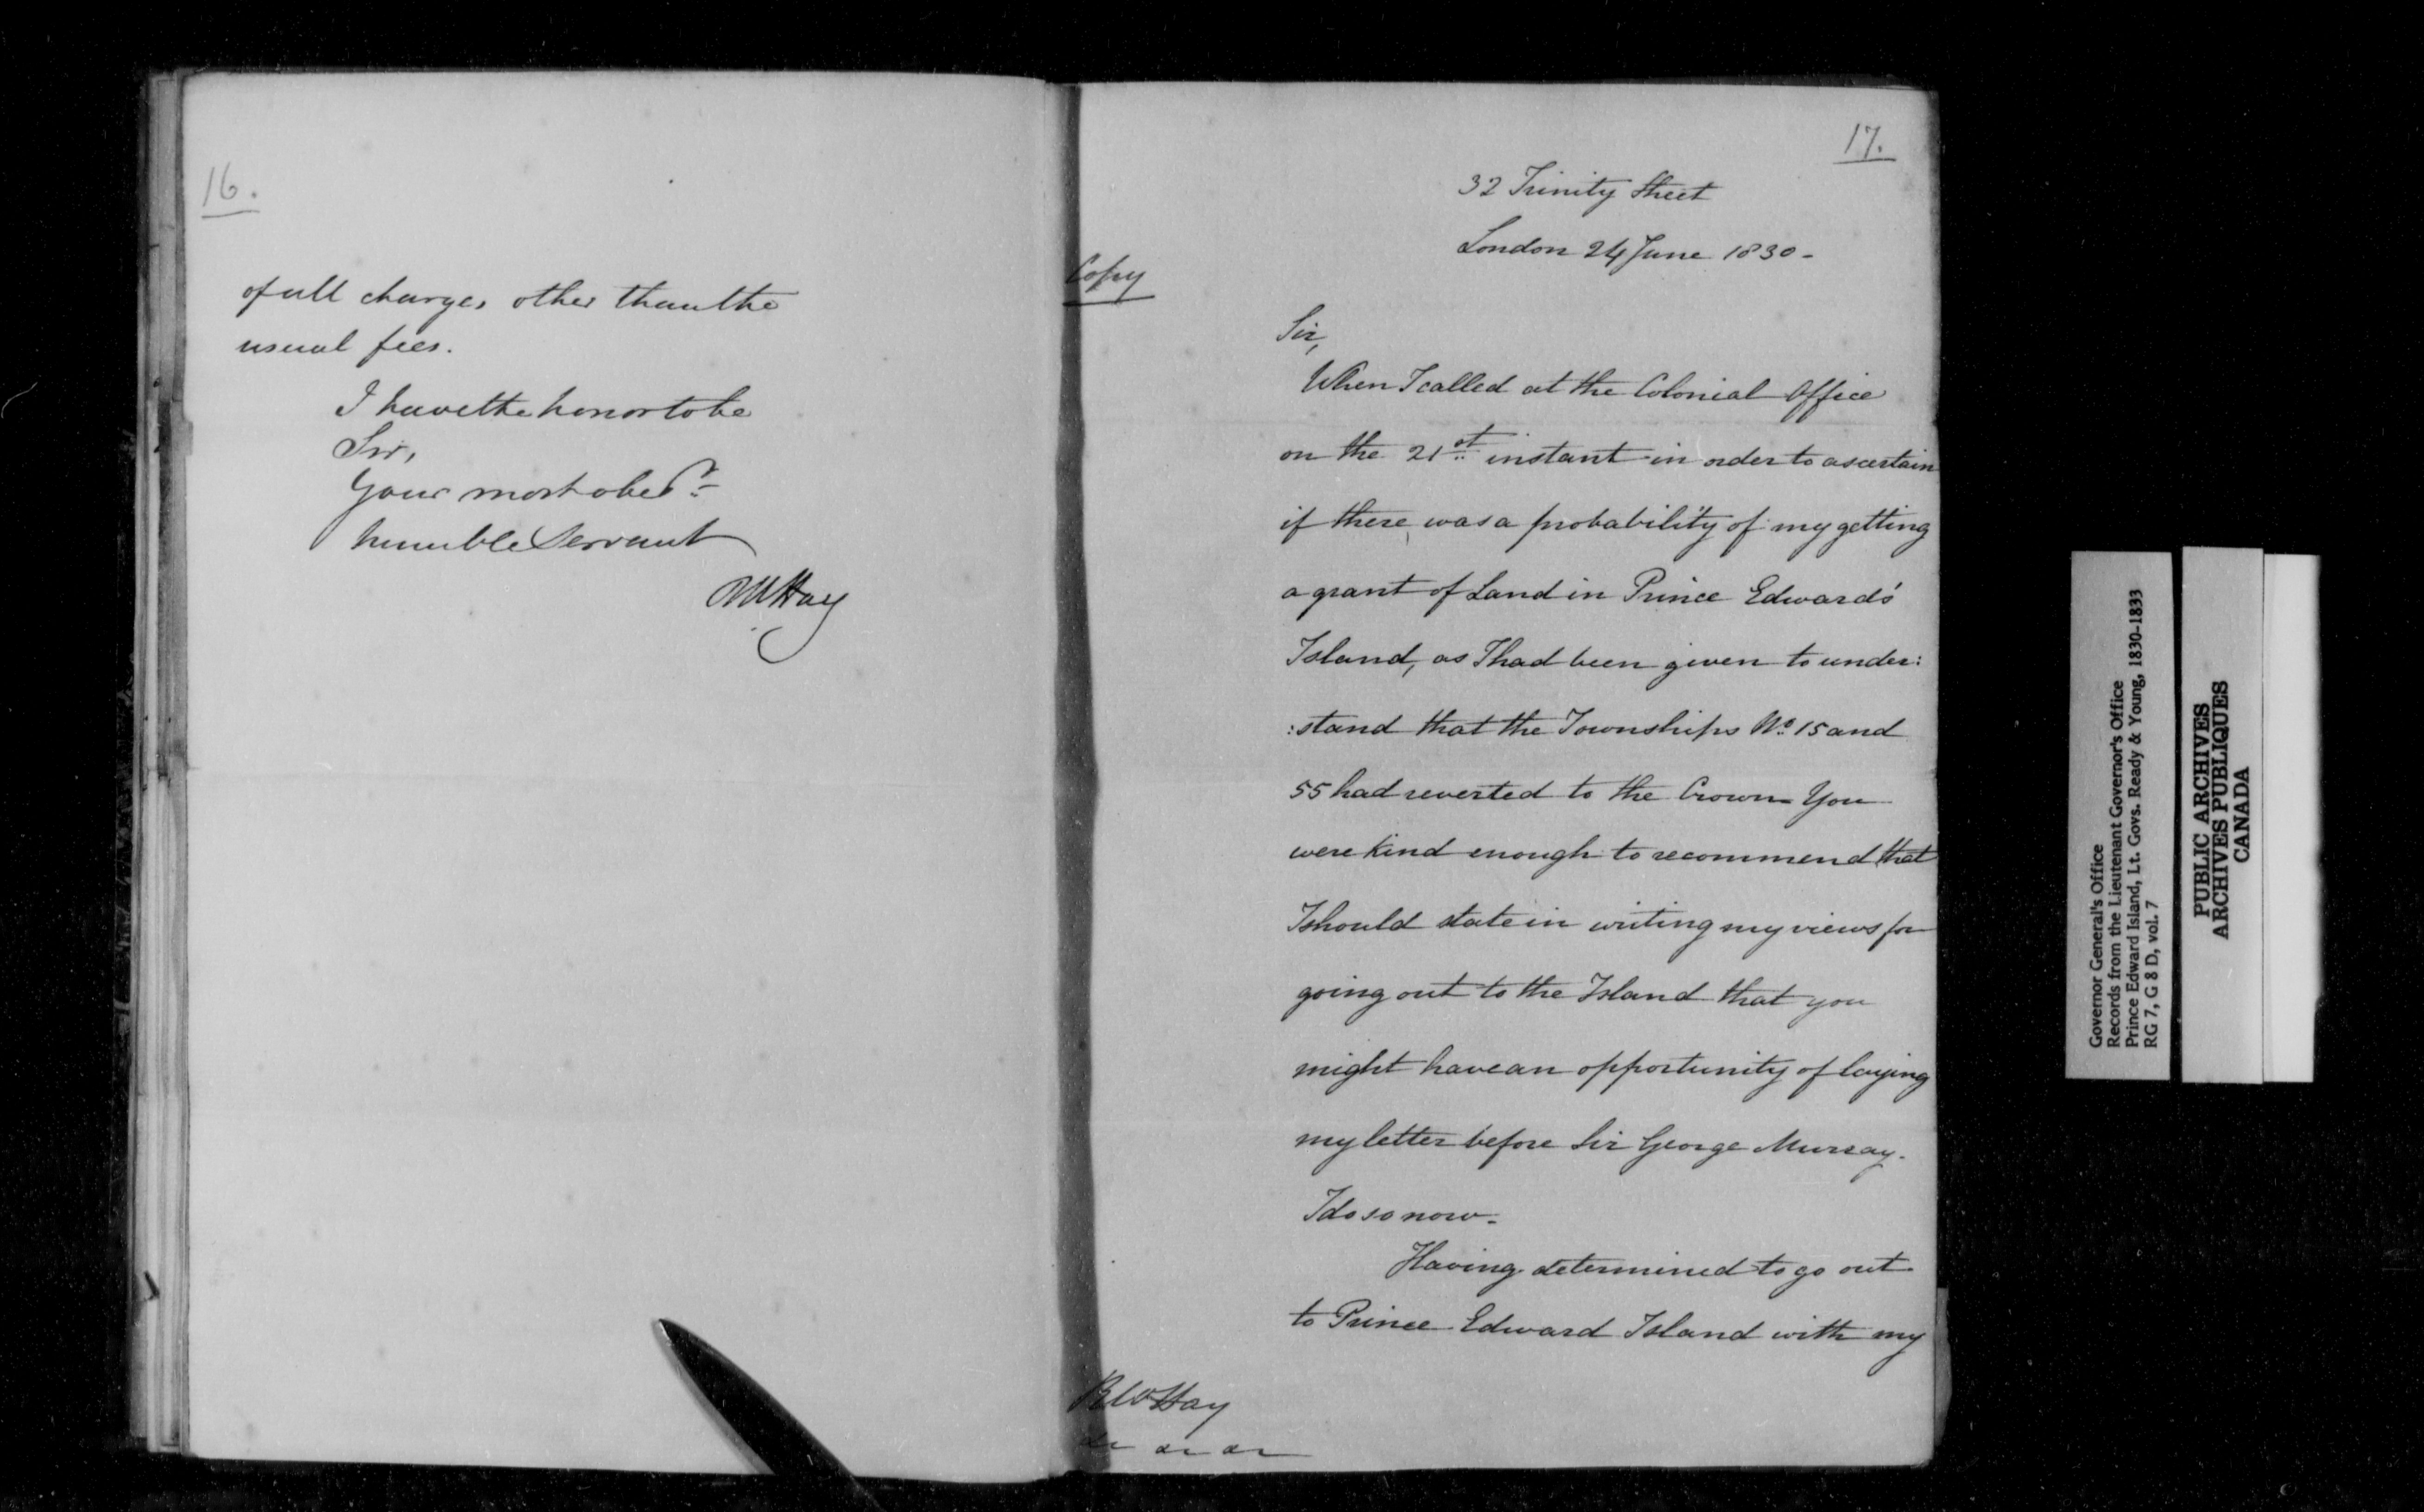 16.
of all charges other than the
usual fees.
I have the honor to be
Sir,
Your most obed.t
humble Servant
RW Hay
17.
32 Trinity Street
London 24 June 1830 -
Copy
Sir,
When I called at the Colonial Office
on the 21st instant in order to ascertain
if there was a probability of my getting
a grant of Land in Prince Edward's
Island, as I had been given to under:
:stand that the Townships No. 15 and
55 had reverted to the Crown - You
were kind enough to recommend that
I should state in writing my views for
going out to the Island that you
might have an opportunity of laying
my letter before Sir George Murray.
I do so now -
Having determined to go out
to Prince Edward Island with my
R W Hay
Governor General's Office
Records from the Lieutenant Governor's Office
Prince Edward Island, Lt. Govs. Ready & Young, 1830-1833
RG 7, G 8 D, vol. 7
PUBLIC ARCHIVES
ARCHIVES PUBLIQUES
CANADA